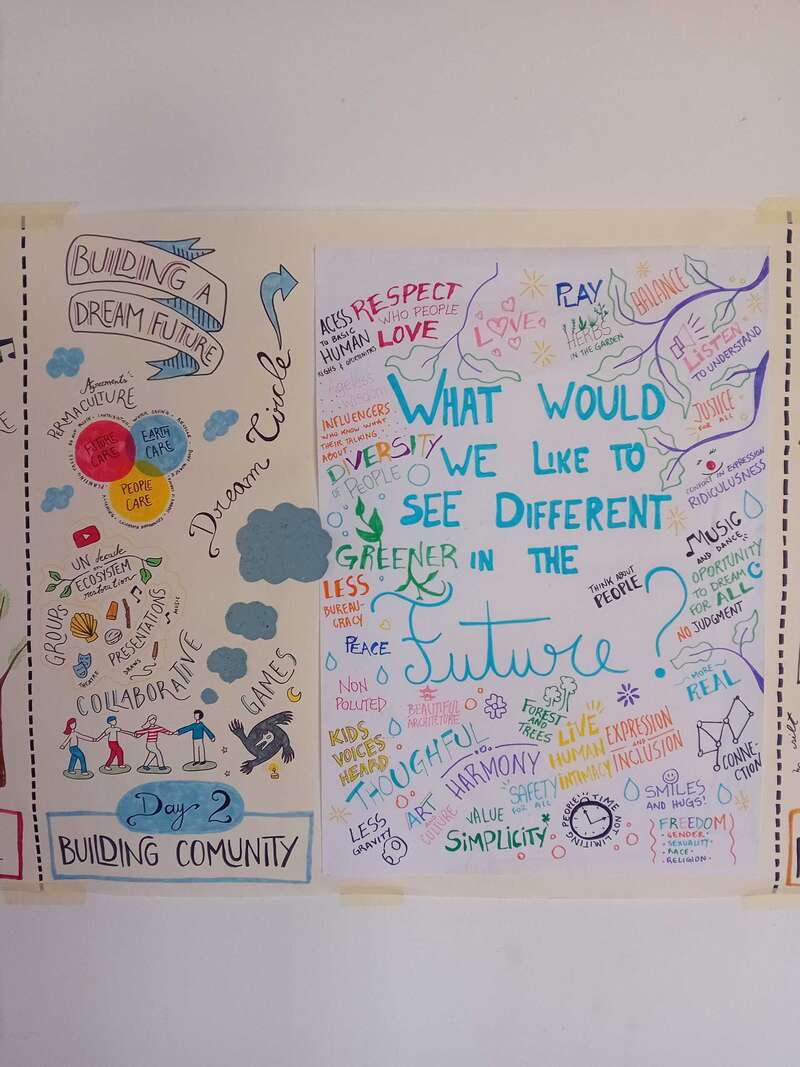 BUILDING A
DREAM FUTURE
Agreements
PERMACULTURE
FUTURE
CARE
EARTH
CARE
PEOPLE
CARE
Dream Circle
UN decade
on
ECOSYSTEM
restoration
GROUPS
PRESENTATIONS
MUSIC
DRAWS
THEATRE
COLLABORATIVE
GAMES
Day 2
BUILDING COMUNITY
WHAT WOULD
WE LIKE TO
SEE DIFFERENT
IN THE
Future?
ACESS
TO BASIC
HUMAN
RIGHS & OPORTUNITIES
RESPECT
WHO PEOPLE
LOVE
LOVE
PLAY
HERBS
IN THE GARDEN
BALANCE
LISTEN
TO UNDERSTAND
INFLUENCERS
WHO KNOW WHAT
THEIR TALKING
ABOUT
JUSTICE
FOR ALL
DIVERSITY
OF PEOPLE
CONFORT IN EXPRESSION
RIDICULOUSNESS
GREENER
MUSIC
AND DANCE
LESS
BUREAU-
CRACY
THINK ABOUT
PEOPLE
OPORTUNITY
TO DREAM
FOR ALL
NO JUDGMENT
PEACE
MORE
REAL
NON
POLLUTED
BEAUTIFUL
ARCHITETURE
FOREST
AND
TREES
KIDS
VOICES
HEARD
THOUGHTFUL
HARMONY
LIVE
HUMAN
INTIMACY
EXPRESSION
AND
INCLUSION
CONNE-
CTION
LESS
GRAVITY
ART
CULTURE
VALUE
SIMPLICITY
SAFETY
FOR ALL
TIME NOT LIMITING PEOPLE
SMILES
AND HUGS!
FREEDOM
• GENDER •
• SEXUALITY •
• RACE •
• RELIGION •